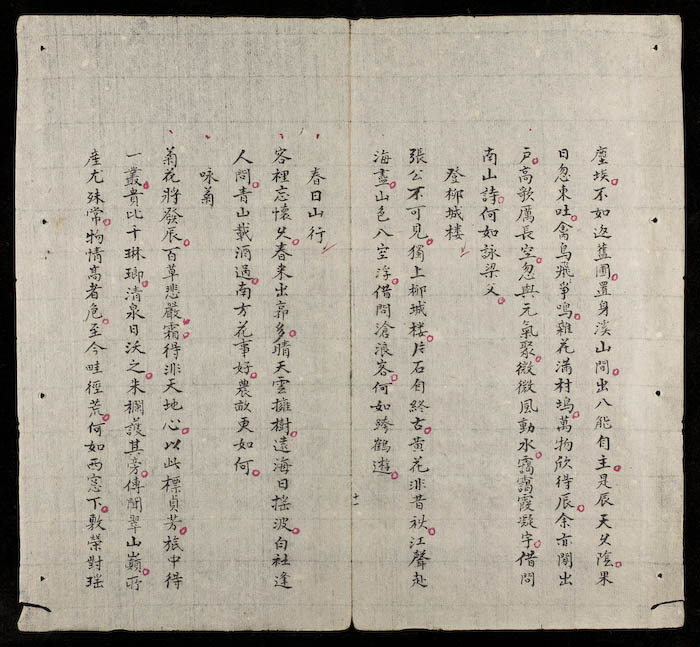 塵埃不如返藍圃置身溪山間出入能自主是辰天久陰果
日忽東吐禽鳥飛爭鳴雜花滿村塢萬物欣得辰余亦闢出
戶高歌厲長空忽與元氣聚微微風動水靄靄霞凝宇借問
南山詩何如詠梁父
登柳城楼
張公不可見獨上柳城楼片石自終古黃花非昔秋江聲赴
海盡山色入空浮借問滄浪客何如跨鶴遊
十一
春日山行
客裡忘懷久春來出郭多晴天雲擁樹遠海日搖波白社逢
人問青山載酒過南方花事好農畝更如何
咏菊
菊花將發辰百草悲嚴霜得非天地心以此標貞芳旅中得
一叢貴比千琳瑯清泉日沃之朱欄護其旁傳聞翠山巔所
產尤殊常物情高者危至今畦徑荒何如西窓下敷榮對瑶